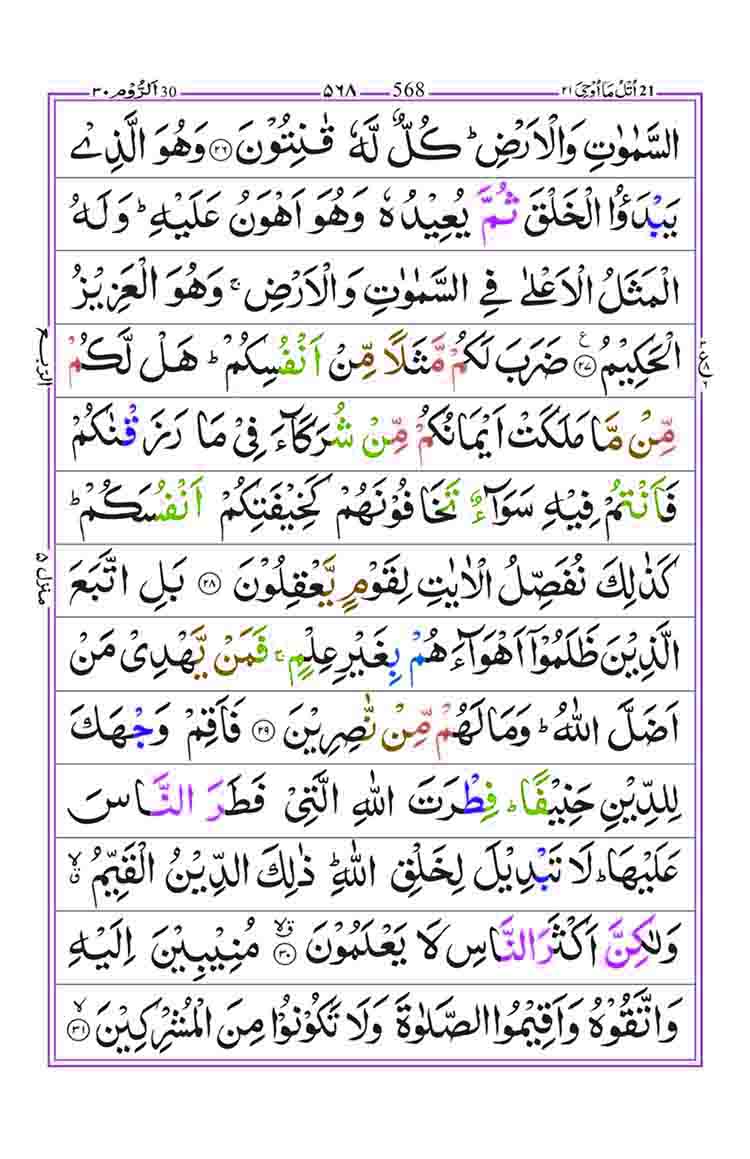 21 اُتْلُ مَا اُوْحِیَ ۲۱ 568 ۵۶۸ 30 اَلرُّوْم ۳۰
السَّمٰوٰتِ وَالْاَرْضِ ؕ كُلٌّ لَّهٗ قٰنِتُوْنَ ۲۶ وَهُوَ الَّذِیْ
یَبْدَؤُا الْخَلْقَ ثُمَّ یُعِیْدُهٗ وَهُوَ اَهْوَنُ عَلَیْهِ ؕ وَلَهُ
الْمَثَلُ الْاَعْلٰی فِی السَّمٰوٰتِ وَالْاَرْضِ ۚ وَهُوَ الْعَزِیْزُ
الْحَكِیْمُ ۲۷ ع ضَرَبَ لَكُمْ مَّثَلًا مِّنْ اَنْفُسِكُمْ ؕ هَلْ لَّكُمْ
مِّنْ مَّا مَلَكَتْ اَیْمَانُكُمْ مِّنْ شُرَكَآءَ فِیْ مَا رَزَقْنٰكُمْ
فَاَنْتُمْ فِیْهِ سَوَآءٌ تَخَافُوْنَهُمْ كَخِیْفَتِكُمْ اَنْفُسَكُمْ ؕ
كَذٰلِكَ نُفَصِّلُ الْاٰیٰتِ لِقَوْمٍ یَّعْقِلُوْنَ ۲۸ بَلِ اتَّبَعَ
الَّذِیْنَ ظَلَمُوْۤا اَهْوَآءَهُمْ بِغَیْرِ عِلْمٍ ۚ فَمَنْ یَّهْدِیْ مَنْ
اَضَلَّ اللّٰهُ ؕ وَمَا لَهُمْ مِّنْ نّٰصِرِیْنَ ۲۹ فَاَقِمْ وَجْهَكَ
لِلدِّیْنِ حَنِیْفًا ؕ فِطْرَتَ اللّٰهِ الَّتِیْ فَطَرَ النَّاسَ
عَلَیْهَا ؕ لَا تَبْدِیْلَ لِخَلْقِ اللّٰهِ ؕ ذٰلِكَ الدِّیْنُ الْقَیِّمُ ۙق
وَلٰكِنَّ اَكْثَرَ النَّاسِ لَا یَعْلَمُوْنَ ۳۰ ۙق مُنِیْبِیْنَ اِلَیْهِ
وَاتَّقُوْهُ وَاَقِیْمُوا الصَّلٰوةَ وَلَا تَكُوْنُوْا مِنَ الْمُشْرِكِیْنَ ۳۱ ۙ
الرّبع
منزل ۵